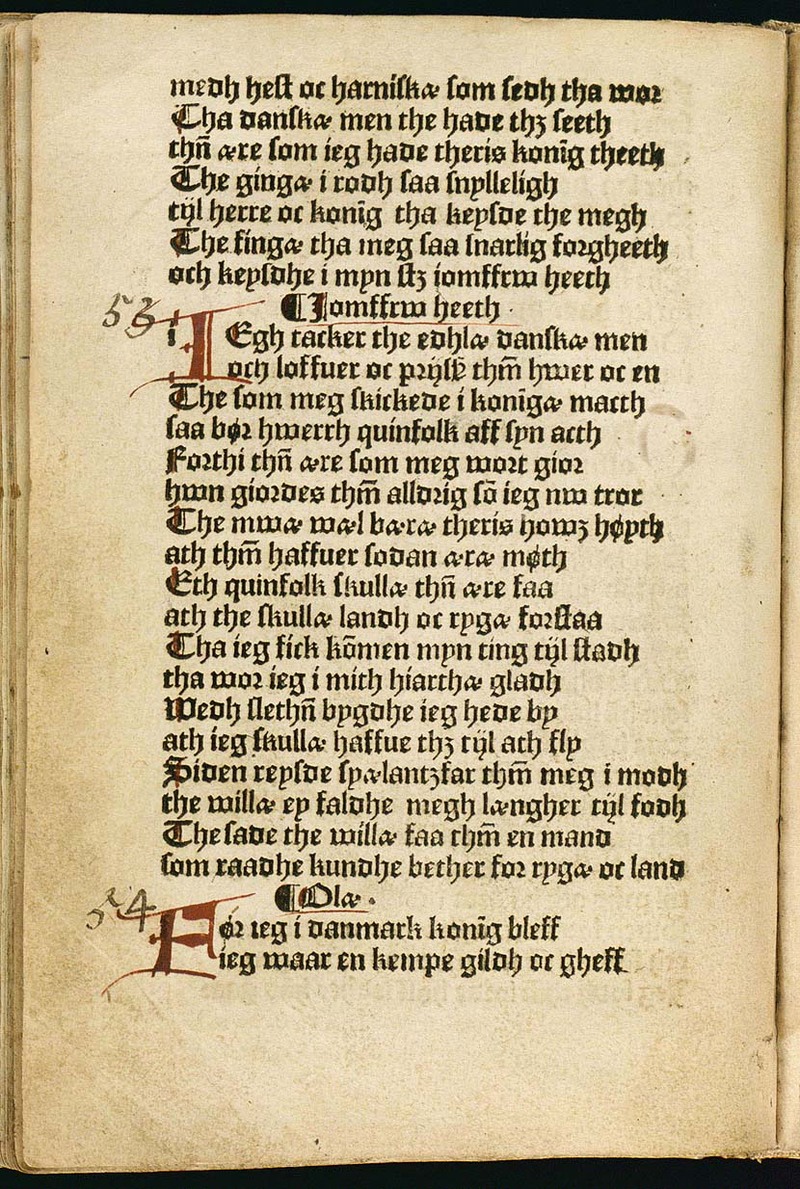 medh hest oc harniskæ som sedh tha wor
Tha danskæ men the hade thꝫ seeth
thn̄ ære som ieg hade theris konīg theeth
The gingæ i rodh saa snylleligh
tijl herre oc konīg tha keysde the megh
The fingæ tha meg saa snarlig forgheeth
och keysdhe i myn stꝫ iomffrw heeth
53
¶Jomffrw heeth
i IEgh tacker the edhlæ danskæ men
och loffuer oc prijsꝫ thm̄ hwer oc en
The som meg skickede i konīgæ macth
saa bør hwerrh quinfolk aff syn acth
Forthi thn̄ ære som meg wort gior
hwn giordes thm̄ alldrig sō ieg nw tror
The mwæ wæl bæræ theris howꝫ høyth
ath thm̄ haffuer sodan æræ møth
Eth quinfolk skullæ thn̄ ære faa
ath the skullæ landh oc rygæ forstaa
Tha ieg fick kōmen myn ting tijl stadh
tha wor ieg i mith hiarthæ gladh
Wedh slethn̄ bygdhe ieg hede by
ath ieg skullæ haffue thꝫ tijl ath fly
Siden reysde syælantꝫfar thm̄ meg i modh
the willæ ey faldhe megh længher tijl fodh
The sade the willæ faa thm̄ en mand
som raadhe kundhe bether for rygæ oc land
54
¶Olæ.
FØr ieg i danmark konīg bleff
ieg waar en kempe gildh oc gheff